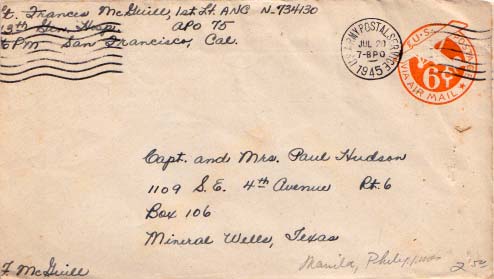 Lt. Frances McGuill, 1st Lt. ANC N-734130
13th Gen. Hosp. APO 75
℅ PM San Francisco, Cal.
U.S. ARMY POSTAL SERVICE
JUL 20
7-8 PM
1945
U.S. POSTAGE
6¢
VIA AIR MAIL
Capt. and Mrs. Paul Hudson
1109 S.E. 4th Avenue Rt. 6
Box 106
Mineral Wells, Texas
Manila, Philippines
2.50
F. McGuill